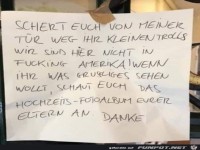 SCHERT EUCH VON MEINER
TÜR WEG IHR KLEINEN TROLLS
WIR SIND HIER NICHT IN
FUCKING AMERIKA! WENN
IHR WAS GRUSLIGES SEHEN
WOLLT, SCHAUT EUCH DAS
HOCHZEITS-FOTOALBUM EURER
ELTERN AN DANKE
FUNPOT.NET